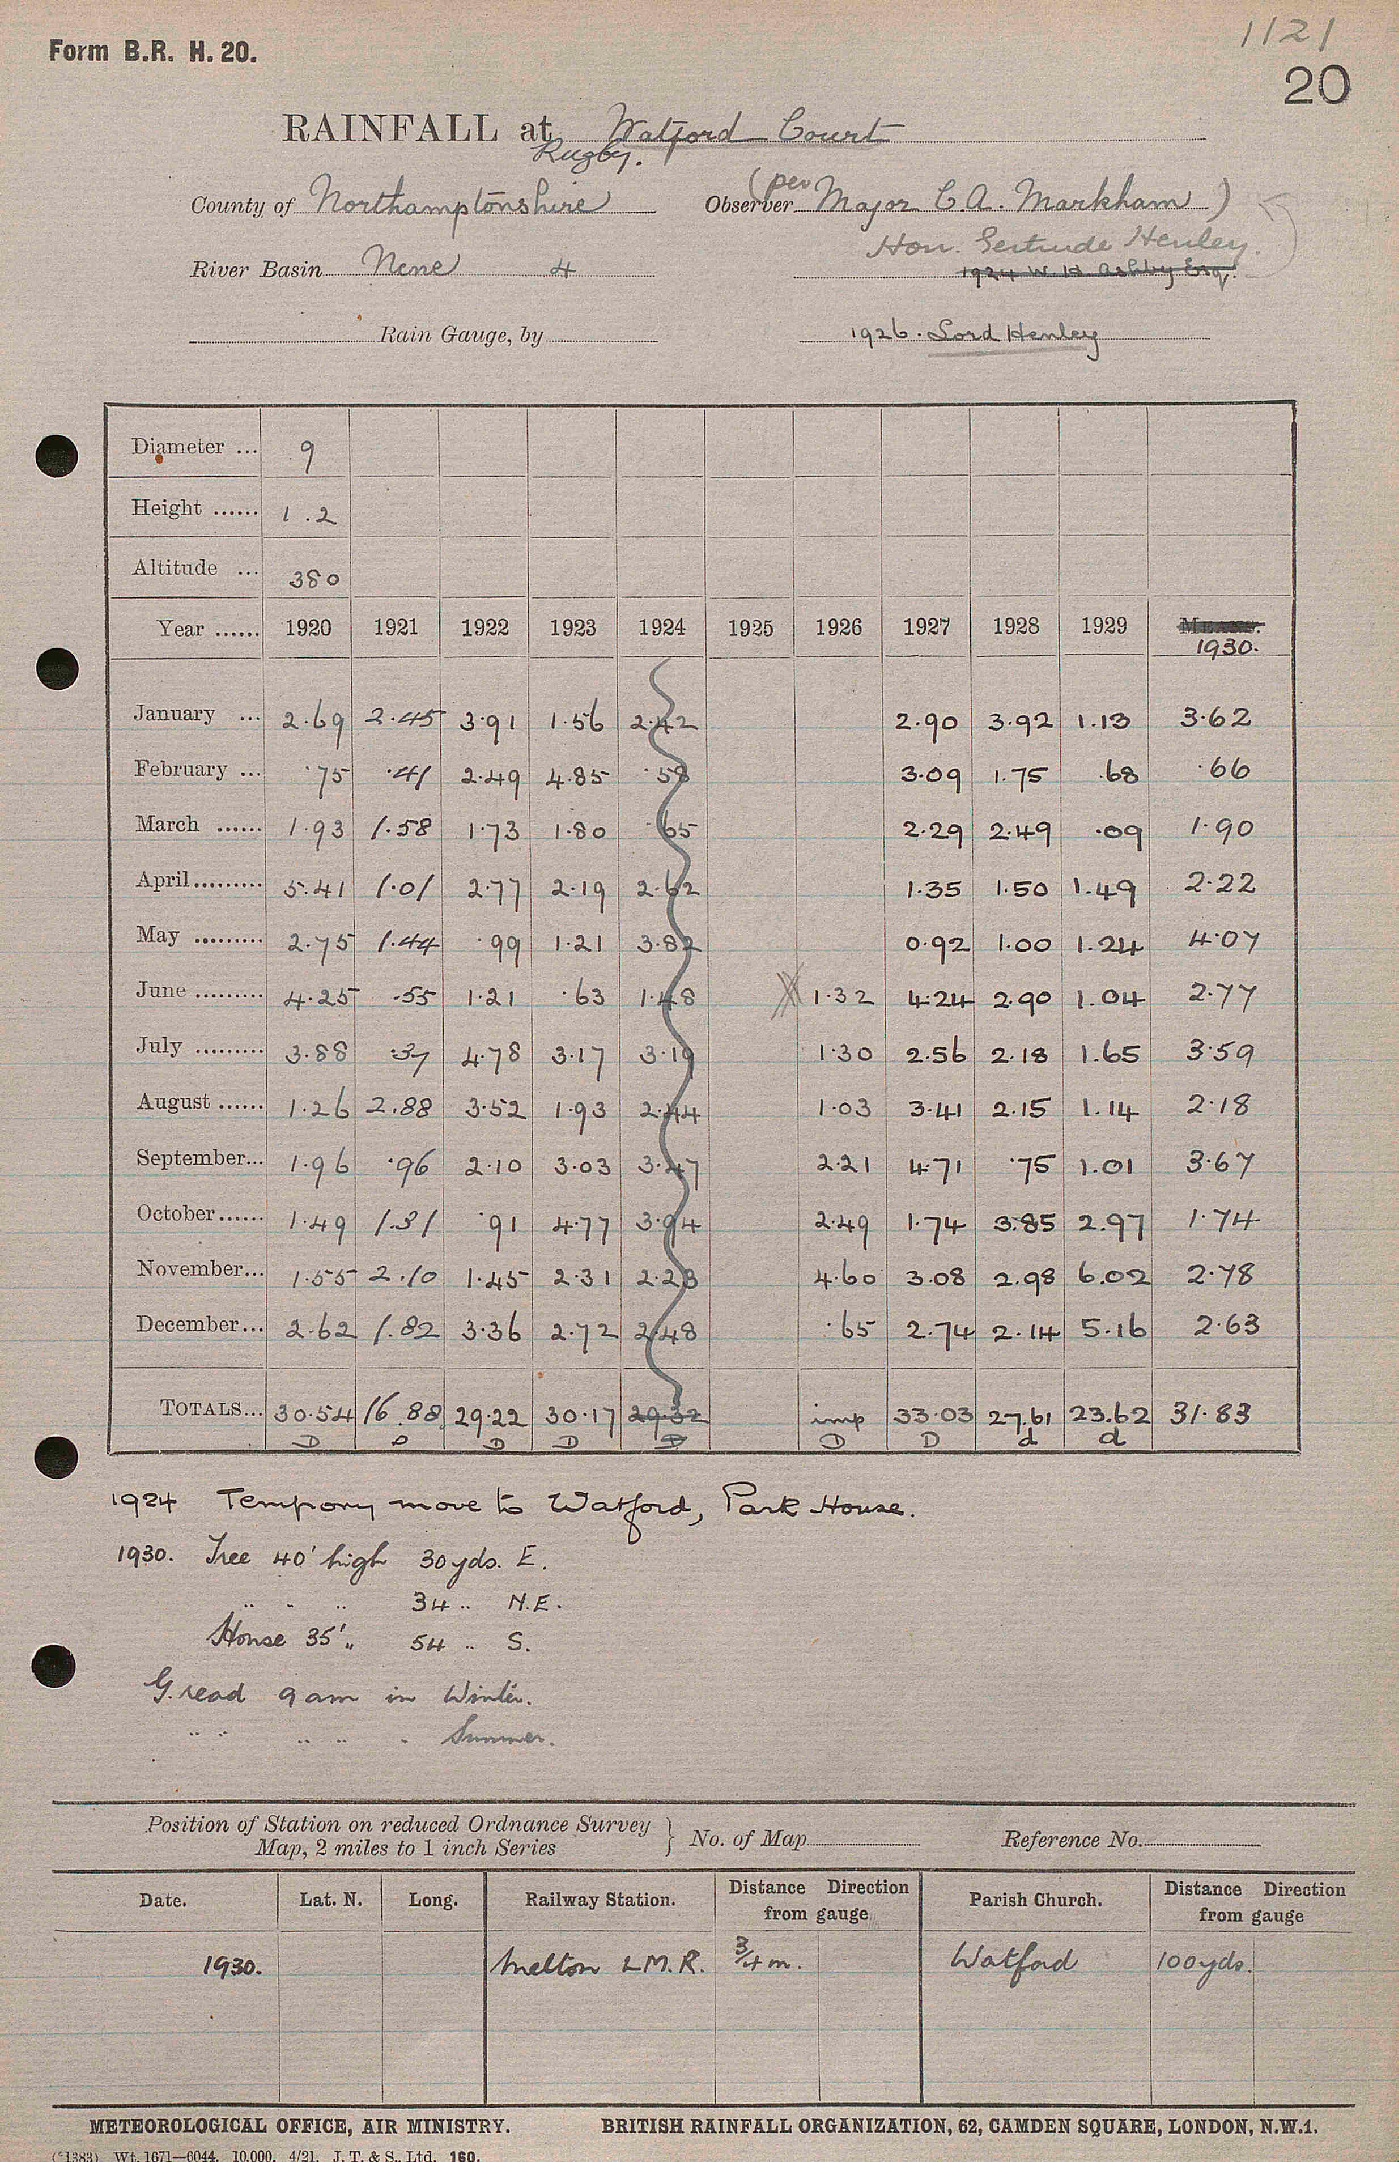 1121
Form B.R. H. 20.
20
RAINFALL at Watford Court
Rugby.
County of Northamptonshire Observer (per Major C.A. Markham)
Hon. Gertrude Henley.
River Basin Nene 4 1924 W. H. Ashby Esq.
Rain Gauge, by 1926. Lord Henley
Diameter ... 9
Height ...... 1.2
Altitude ... 380
Year ...... 1920 1921 1922 1923 1924 1925 1926 1927 1928 1929 MEANS.
1930.
January ... 2.69 2.45 3.91 1.56 2.42 2.90 3.92 1.13 3.62
February ... .75 .41 2.49 4.85 .58 3.09 1.75 .68 .66
March ...... 1.93 1.58 1.73 1.80 .65 2.29 2.49 .09 1.90
April......... 5.41 1.01 2.77 2.19 2.62 1.35 1.50 1.49 2.22
May ......... 2.75 1.44 .99 1.21 3.82 0.92 1.00 1.24 4.07
June ......... 4.25 .55 1.21 .63 1.48 1.32 4.24 2.90 1.04 2.77
July ......... 3.88 .37 4.78 3.17 3.19 1.30 2.56 2.18 1.65 3.59
August ...... 1.26 2.88 3.52 1.93 2.44 1.03 3.41 2.15 1.14 2.18
September... 1.96 .96 2.10 3.03 3.47 2.21 4.71 .75 1.01 3.67
October...... 1.49 1.31 .91 4.77 3.94 2.49 1.74 3.85 2.97 1.74
November... 1.55 2.10 1.45 2.31 2.23 4.60 3.08 2.98 6.02 2.78
December... 2.62 1.82 3.36 2.72 2.48 .65 2.74 2.14 5.16 2.63
TOTALS... 30.54 16.88 29.22 30.17 29.32 imp 33.03 27.61 23.62 31.83
D D D D D D D d d
1924 Tempory move to Watford, Park House.
1930. Tree 40' high 30 yds. E.
" " " 34 " N.E.
House 35' " 54 " S.
G. read 9 am in Winter.
" " " " " Summer.
Position of Station on reduced Ordnance Survey
Map, 2 miles to 1 inch Series } No. of Map Reference No.
Date. Lat. N. Long. Railway Station. Distance from gauge Direction Parish Church. Distance from gauge Direction
1930. Melton L.M.R. 3/4 m. Watford 100 yds.
METEOROLOGICAL OFFICE, AIR MINISTRY. BRITISH RAINFALL ORGANIZATION, 62, CAMDEN SQUARE, LONDON, N.W.1.
(*1383) Wt. 1671—6044. 10,000. 4/21. J. T. & S., Ltd. 160.